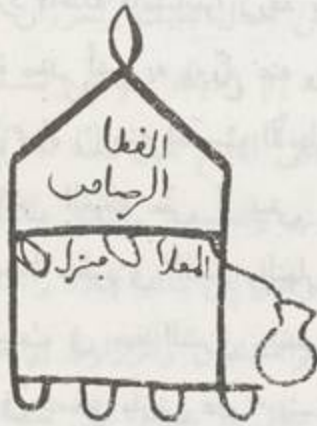 الغطا
الرصاص
المعلا منزل